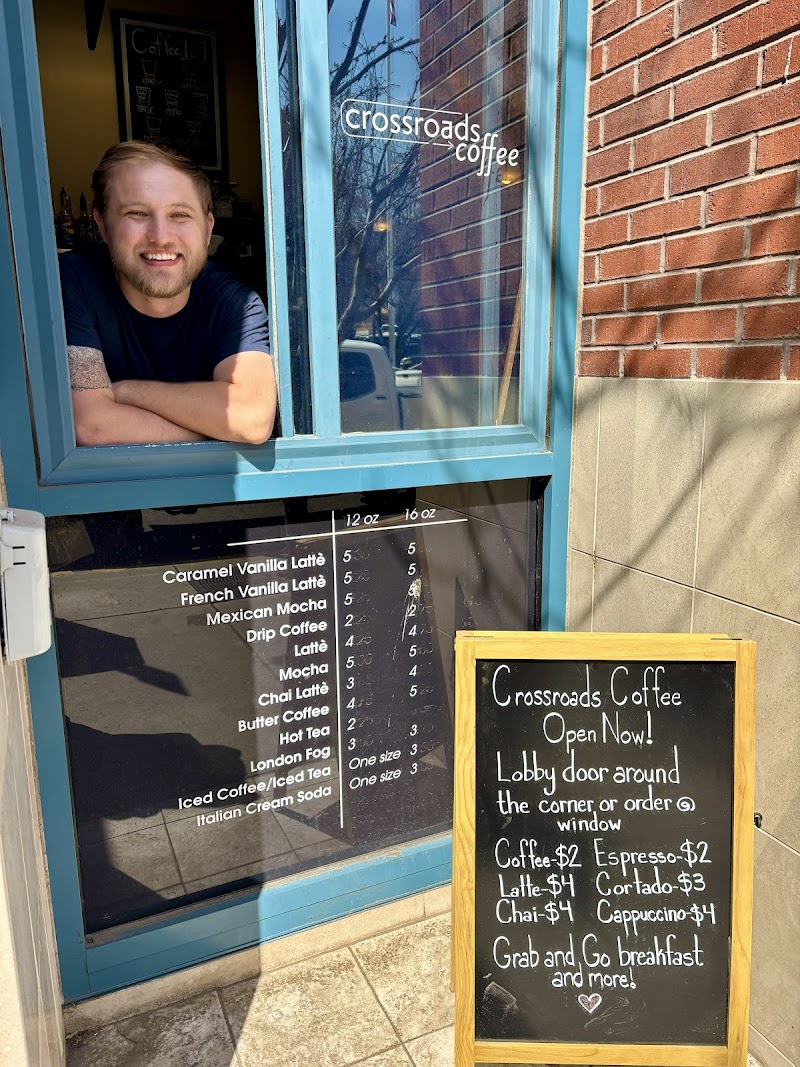 Coffee
crossroads
coffee
12 oz 16 oz
Caramel Vanilla Lattè 5 5
French Vanilla Lattè 5 5
Mexican Mocha 5
Drip Coffee 2 2
Lattè 4 4
Mocha 5 5
Chai Lattè 3 4
Butter Coffee 4 5
Hot Tea 2
London Fog 3 3
Iced Coffee/Iced Tea One size 3
Italian Cream Soda One size 3
Crossroads Coffee
Open Now!
Lobby door around
the corner or order @
window
Coffee-$2 Espresso-$2
Latte-$4 Cortado-$3
Chai-$4 Cappuccino-$4
Grab and Go breakfast
and more!